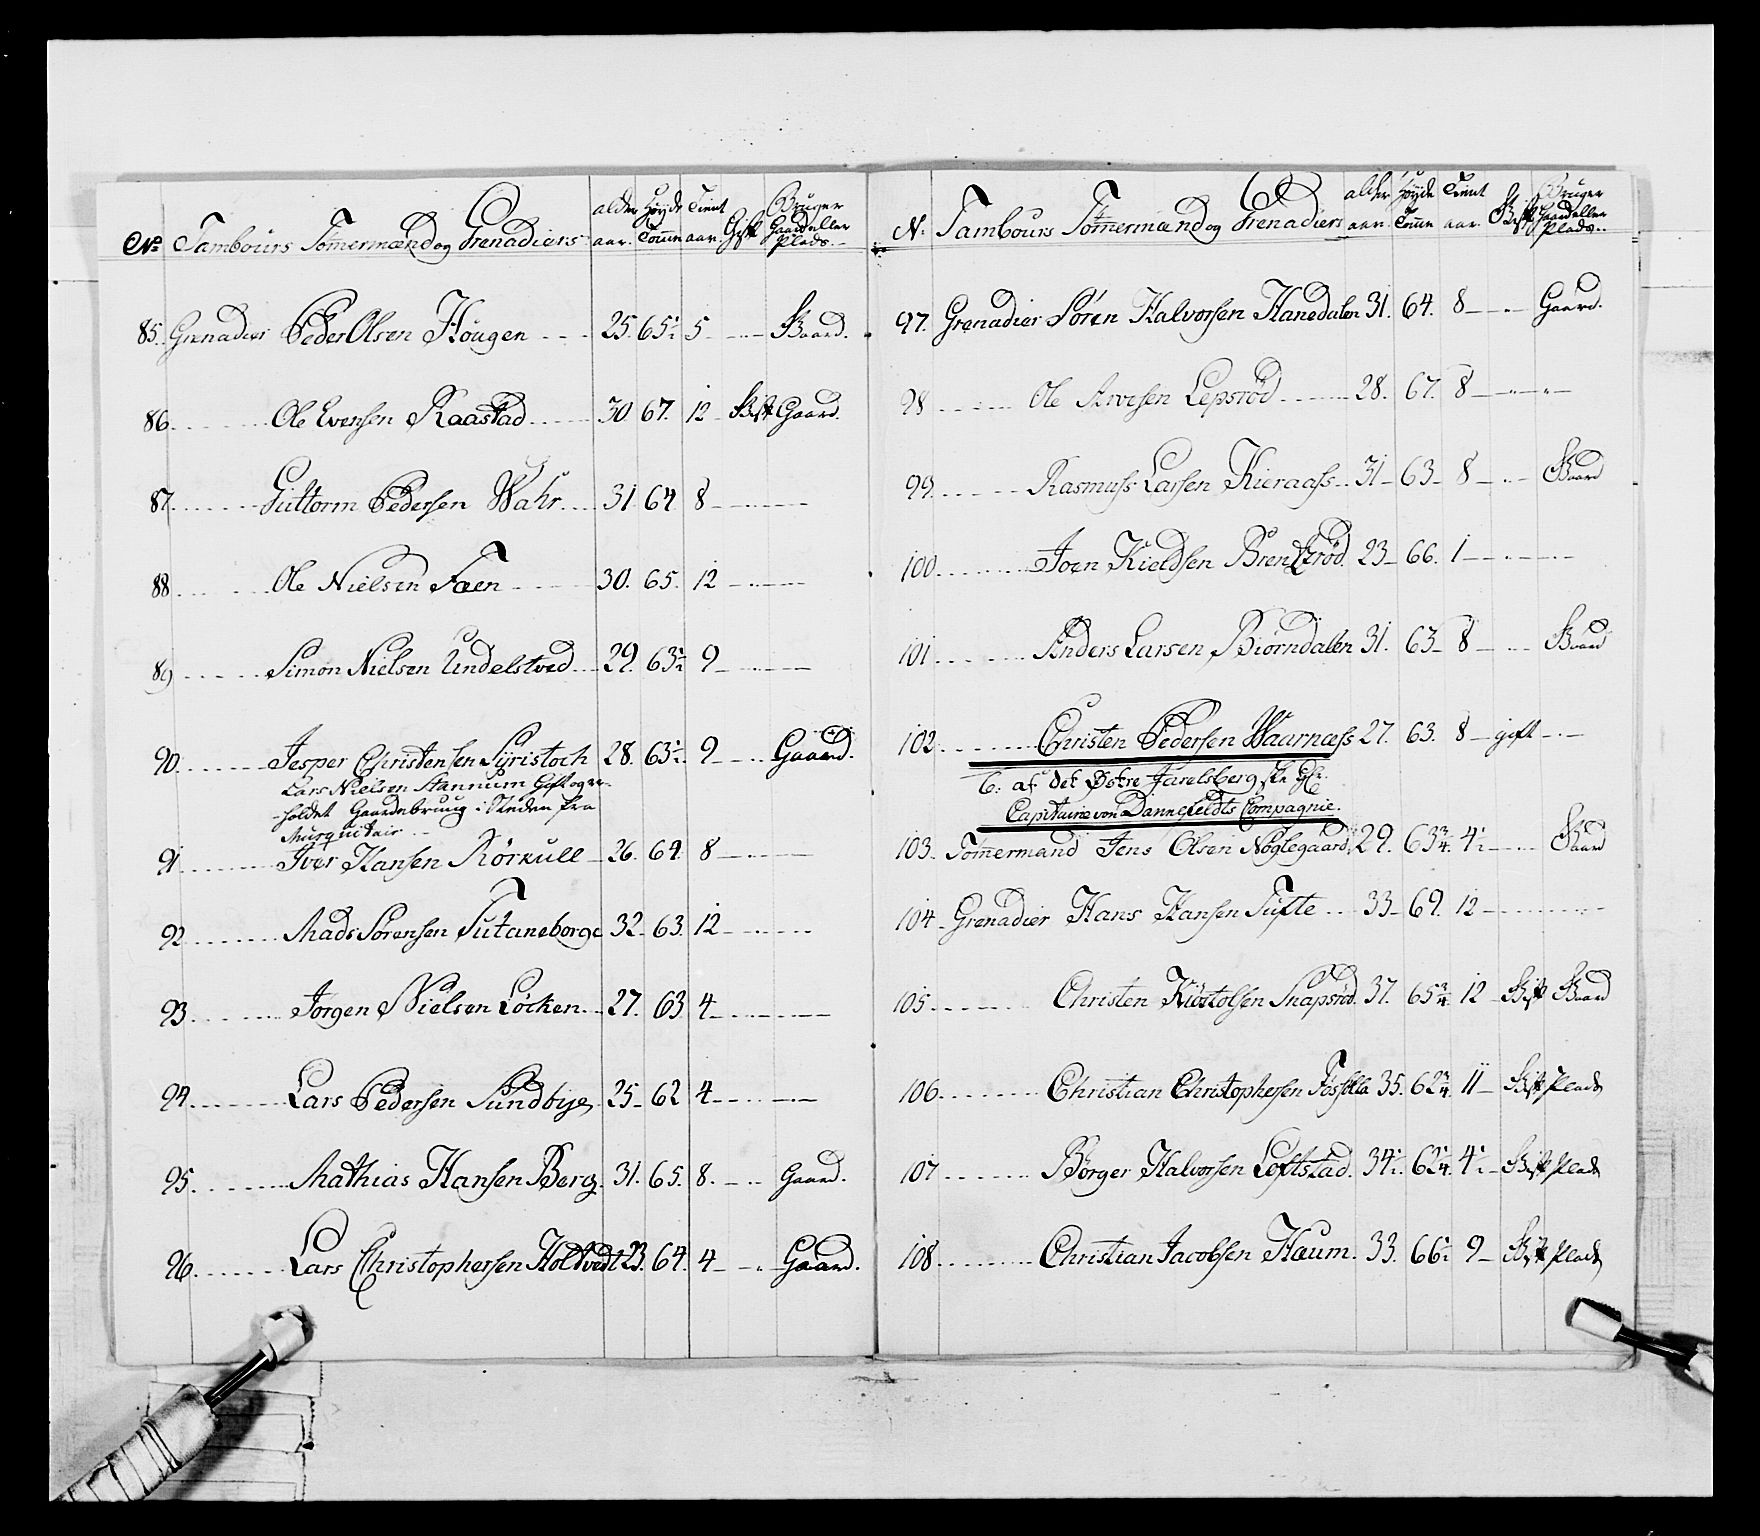 No Tambours Tømermænd og Grenadiers alder aar. Høyde Tomme Tient aar. Gift Bruger Gaard eller Plads.
85. Grenadier Peder Olsen Hougen 25. 65½ 5 Gaard.
86. Ole Evensen Raastad 30 67. 12 Gift Gaard.
87. Guttorm Pedersen Wahr 31 64 8
88. Ole Nielsen Faen 30. 65. 12
89. Simon Nielsen Undelstved 29. 63½ 9
90. Jesper Christensen Syristoch 28. 63½ 9 Gaard.
Lars Nielsen Stannum Gift og er
holdet Gaardebrug i Steden fra
Musquitair
91. Iver Hansen Rörkull 26. 64 8
92. Mads Sörensen Sutaneborge 32 63. 12
93. Jörgen Nielsen Löcken 27. 63 4
94. Lars Pedersen Sundbye 25 62 4
95. Mathias Hansen Berg 31. 65. 8. Gaard.
96. Lars Christophersen Holtvedt 23. 64. 4 Gaard.
N. Tambours Tømermænd og Grenadiers alder aar. Høyde Tomme Tient aar. Gift Bruger Gaard eller Plads.
97. Grenadier Sören Halvorsen Hanedalen 31. 64. 8 Gaard.
98 Ole Arvesen Lepsröd 28. 67. 8
99. Rasmuss Larsen Kieraass 31 63 8 Gaard
100. Joen Kieldsen Brentzröd. 23 66. 1
101 Anders Larsen Biörndalen 31. 63 8 Gaard
102. Christen Pedersen Waarnæss 27. 63. 8 gift
6. af det Østre Jarelsbergske
Capitaine von Dannefeldts Compagnie.
103. Tømermand Jens Olsen Nöglegaard. 29. 63¾ 4½ Gaard
104. Grenadier Hans Hansen Tufte 33 69. 12
105. Christen Snapsröd. 37. 65¾ 12 Gift Gaard
106. Christian Christophersen 35. 62¾ 11 Gift Plads
107. Börger Halvorsen Loftstad. 34½. 62¼ 4½ Gift Plads
108. Christian Jacobsen Haum. 33. 66½ 9 Gift Plads